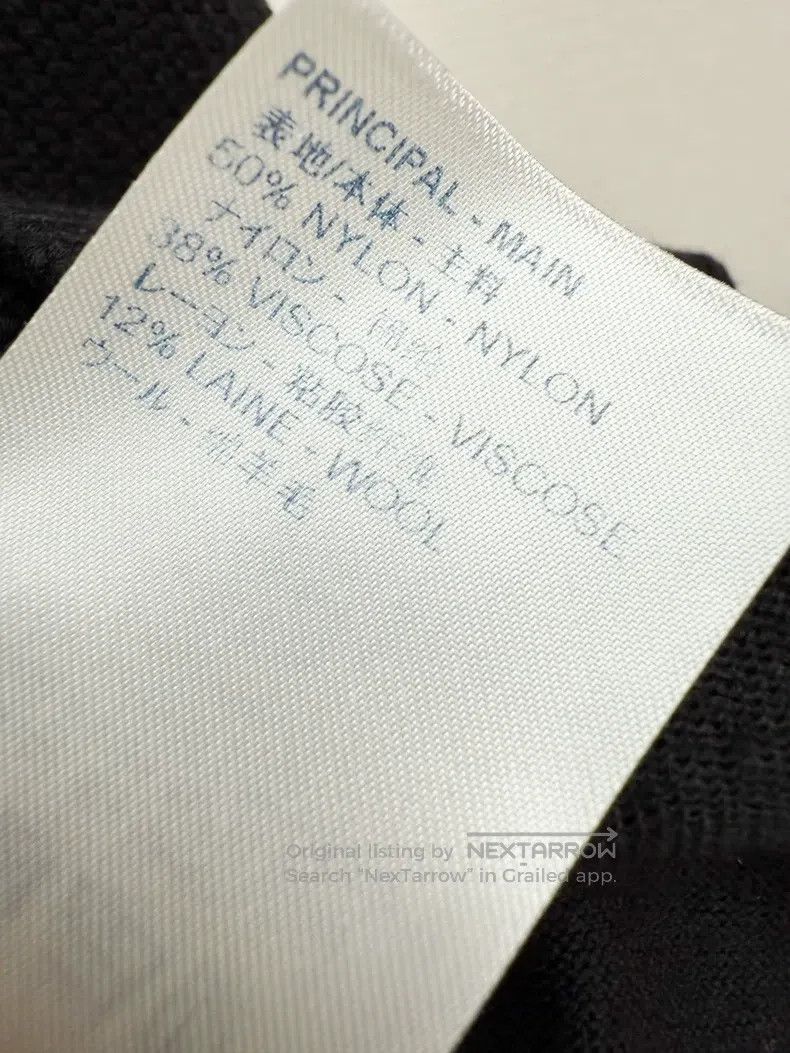 PRINCIPAL - MAIN
表地/本体 - 主料
50% NYLON - NYLON
ナイロン -
38% VISCOSE - VISCOSE
レーヨン - 粘胶纤维
12% LAINE - WOOL
ウール - 绵羊毛
Original listing by NEXTARROW
Search "NexTarrow" in Grailed app.